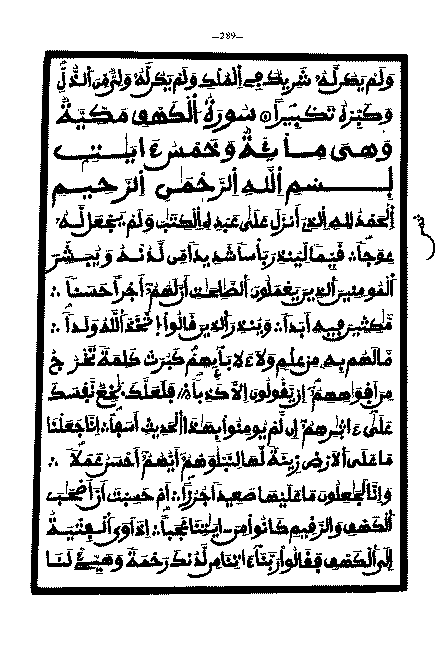 –289–
وَلَمْ يَكُن لَّهُۥ شَرِيكٌ فِي الْمُلْكِ وَلَمْ يَكُن لَّهُۥ وَلِيٌّ مِّنَ الذُّلِّ
وَكَبِّرْهُ تَكْبِيراً سُورَةُ الْكَهْفِ مَكِّيَّةٌ
وَهْىَ مِائَةٌ وَخَمْسُ ءَايَٰتٍ
بِسْمِ اللَّهِ الرَّحْمَٰنِ الرَّحِيمِ
الْحَمْدُ لِلهِ الذِے أَنزَلَ عَلَىٰ عَبْدِهِ الْكِتَٰبَ وَلَمْ يَجْعَل لَّهُۥ
عِوَجاً ∴ قَيِّماً لِّيُنذِرَ بَأْساً شَدِيداً مِّن لَّدُنْهُ وَيُبَشِّرَ
الْمُومِنِينَ الذِينَ يَعْمَلُونَ الصَّٰلِحَٰتِ أَنَّ لَهُمْ أَجْراً حَسَناً ∴
مَّٰكِثِينَ فِيهِ أَبَداً ∴ وَيُنذِرَ الذِينَ قَالُوا اتَّخَذَ اللَّهُ وَلَداً ∴
مَّا لَهُم بِهِۦ مِنْ عِلْمٍ وَلَا لِأَبَآئِهِمْ كَبُرَتْ كَلِمَةً تَخْرُجُ
مِنْ أَفْوَٰهِهِمْ إِنْ يَّقُولُونَ إِلَّا كَذِباً ∴ فَلَعَلَّكَ بَٰخِعٌ نَّفْسَكَ
عَلَىٰ ءَاثَٰرِهِمْ إِن لَّمْ يُومِنُوا بِهَٰذَا الْحَدِيثِ أَسَفاً ∴ إِنَّا جَعَلْنَا
مَا عَلَى الْأَرْضِ زِينَةً لَّهَا لِنَبْلُوَهُمْ أَيُّهُمْ أَحْسَنُ عَمَلاً ∴
وَإِنَّا لَجَٰعِلُونَ مَا عَلَيْهَا صَعِيداً جُرُزاً ∴ أَمْ حَسِبْتَ أَنَّ أَصْحَٰبَ
الْكَهْفِ وَالرَّقِيمِ كَانُوا مِنْ ءَايَٰتِنَا عَجَباً ∴ إِذْ أَوَى الْفِتْيَةُ
إِلَى الْكَهْفِ فَقَالُوا رَبَّنَا ءَاتِنَا مِن لَّدُنكَ رَحْمَةً وَهَيِّئْ لَنَا